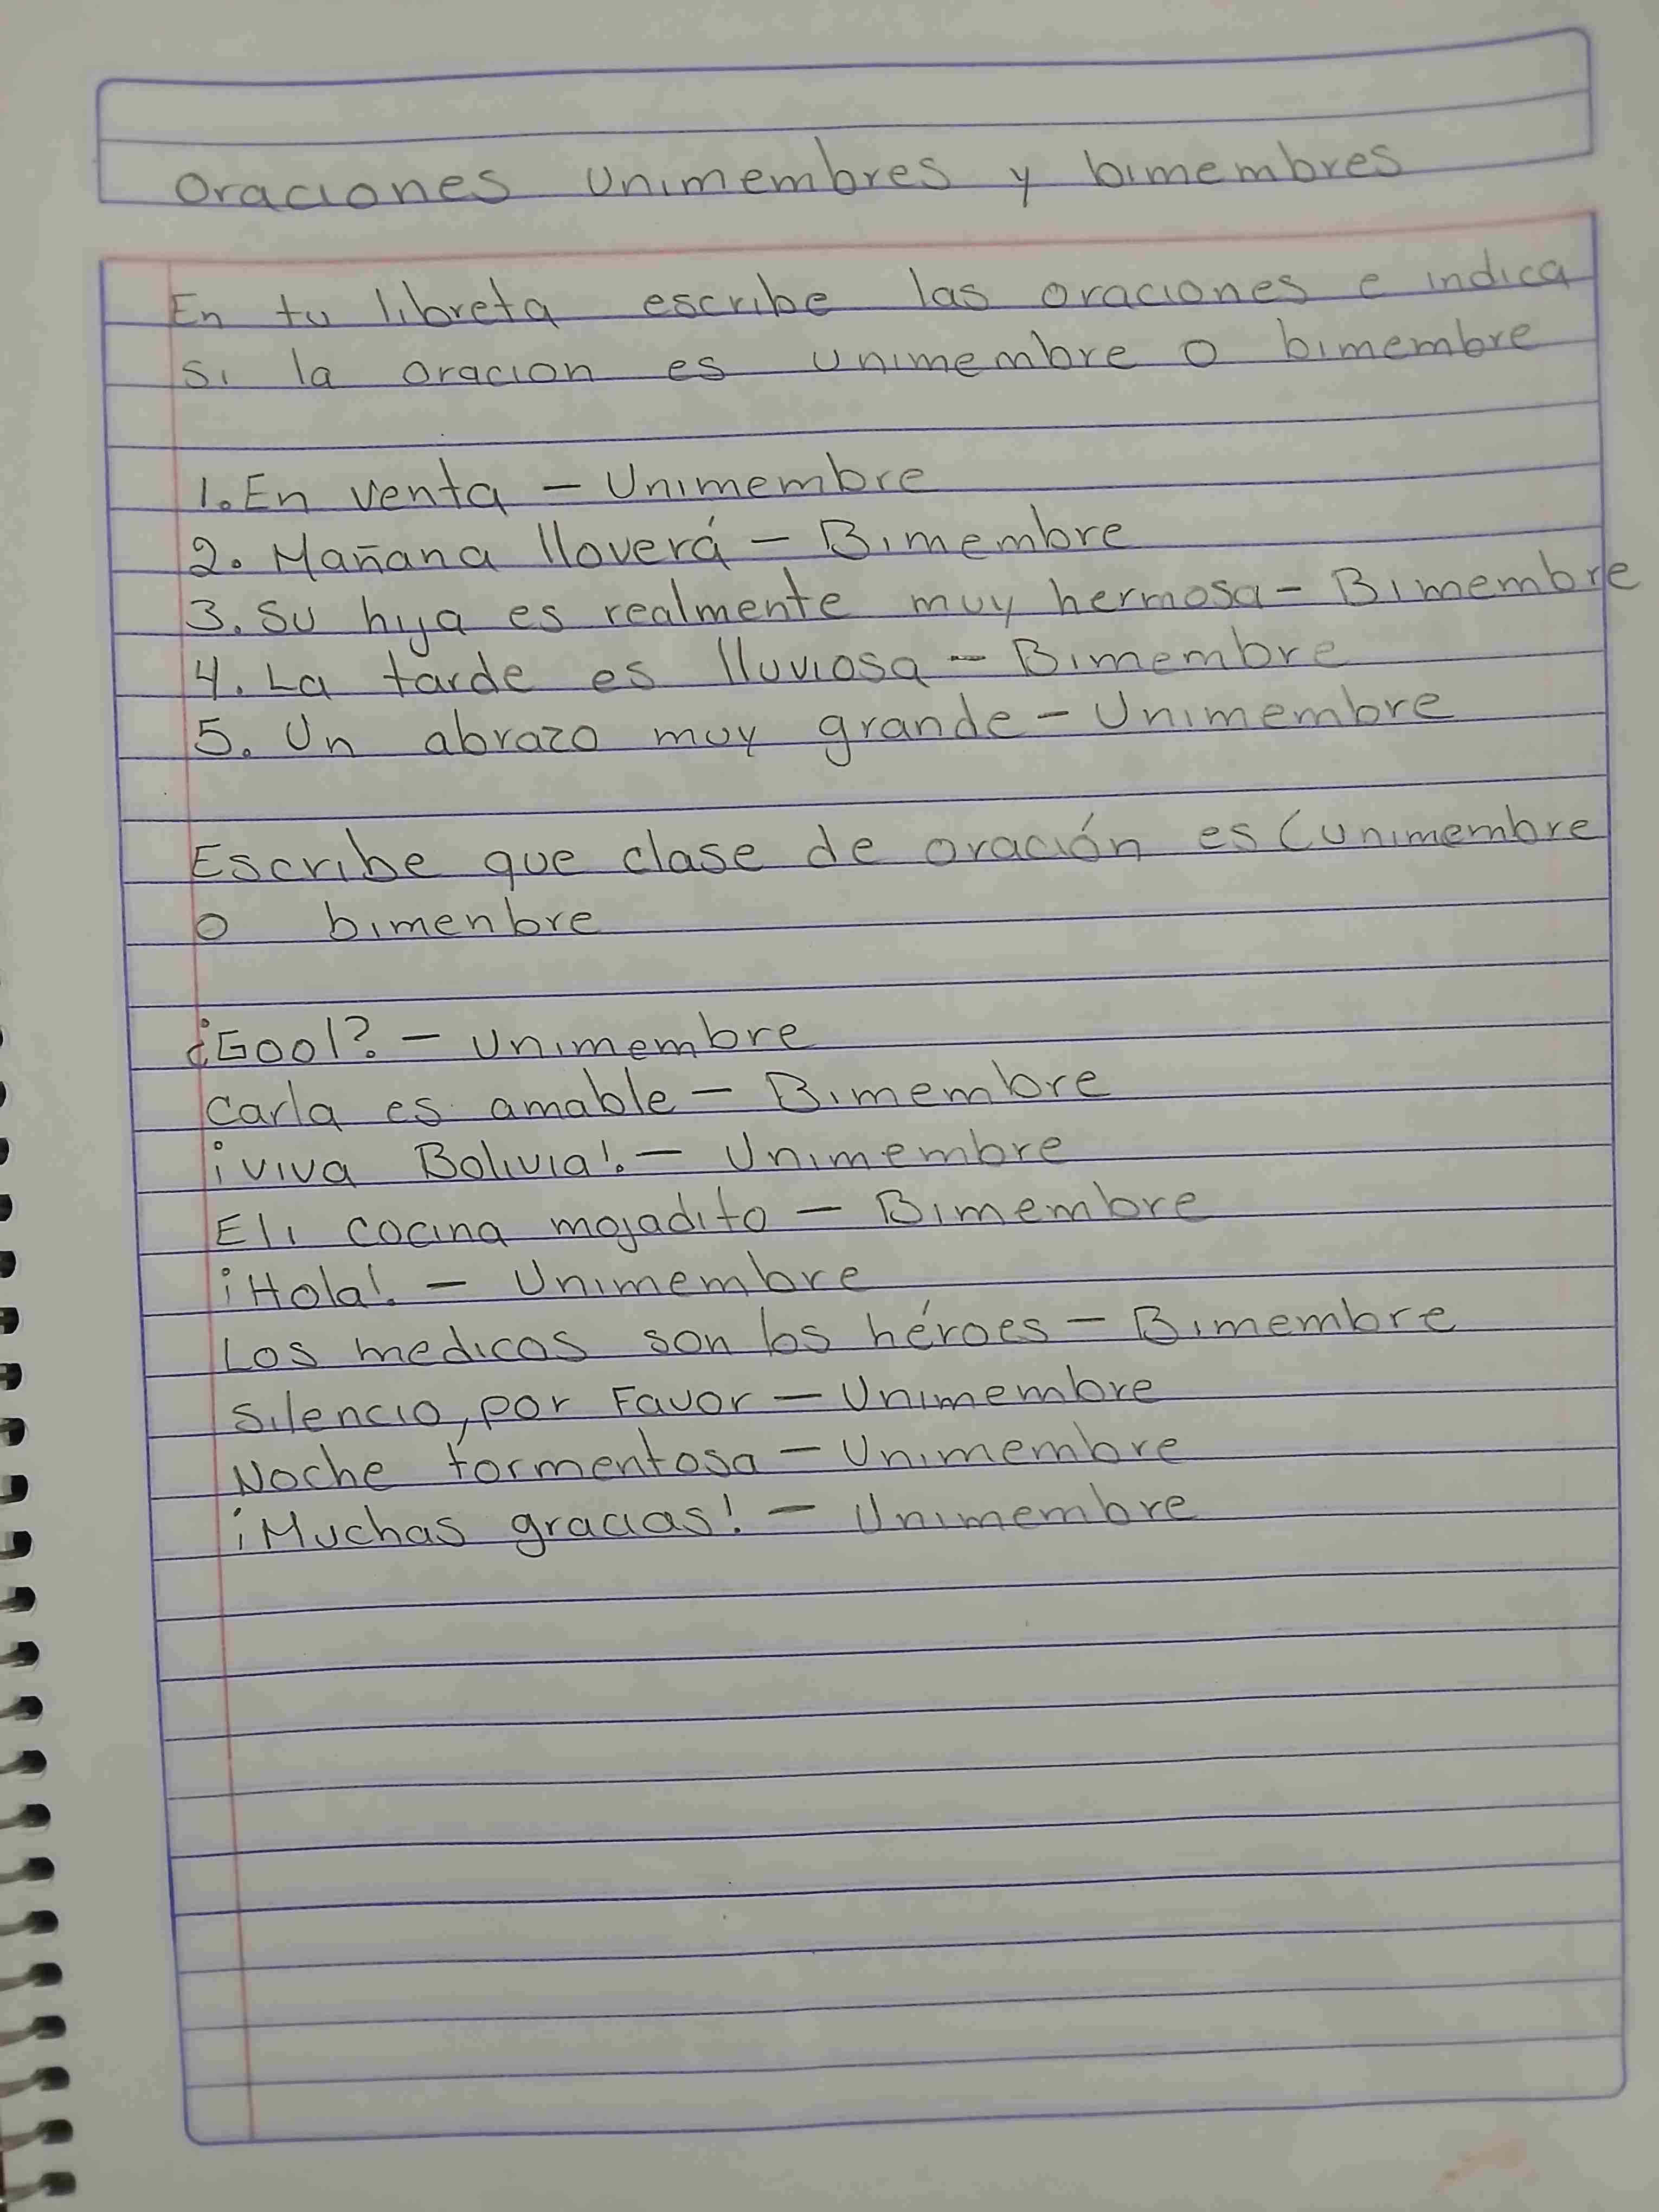 Oraciones Unimembres y bimembres
En tu libreta escribe las oraciones e indica
si la oracion es unimembre o bimembre
1. En venta - Unimembre
2. Mañana lloverá - Bimembre
3. Su hija es realmente muy hermosa - Bimembre
4. La tarde es lluviosa - Bimembre
5. Un abrazo muy grande - Unimembre
Escribe que clase de oración es (unimembre
o bimenbre
¿Gool? - Unimembre
Carla es amable - Bimembre
¡viva Bolivia! - Unimembre
Eli cocina mojadito - Bimembre
¡Hola! - Unimembre
Los medicos son los héroes - Bimembre
Silencio, por Favor - Unimembre
Noche tormentosa - Unimembre
¡Muchas gracias! - Unimembre